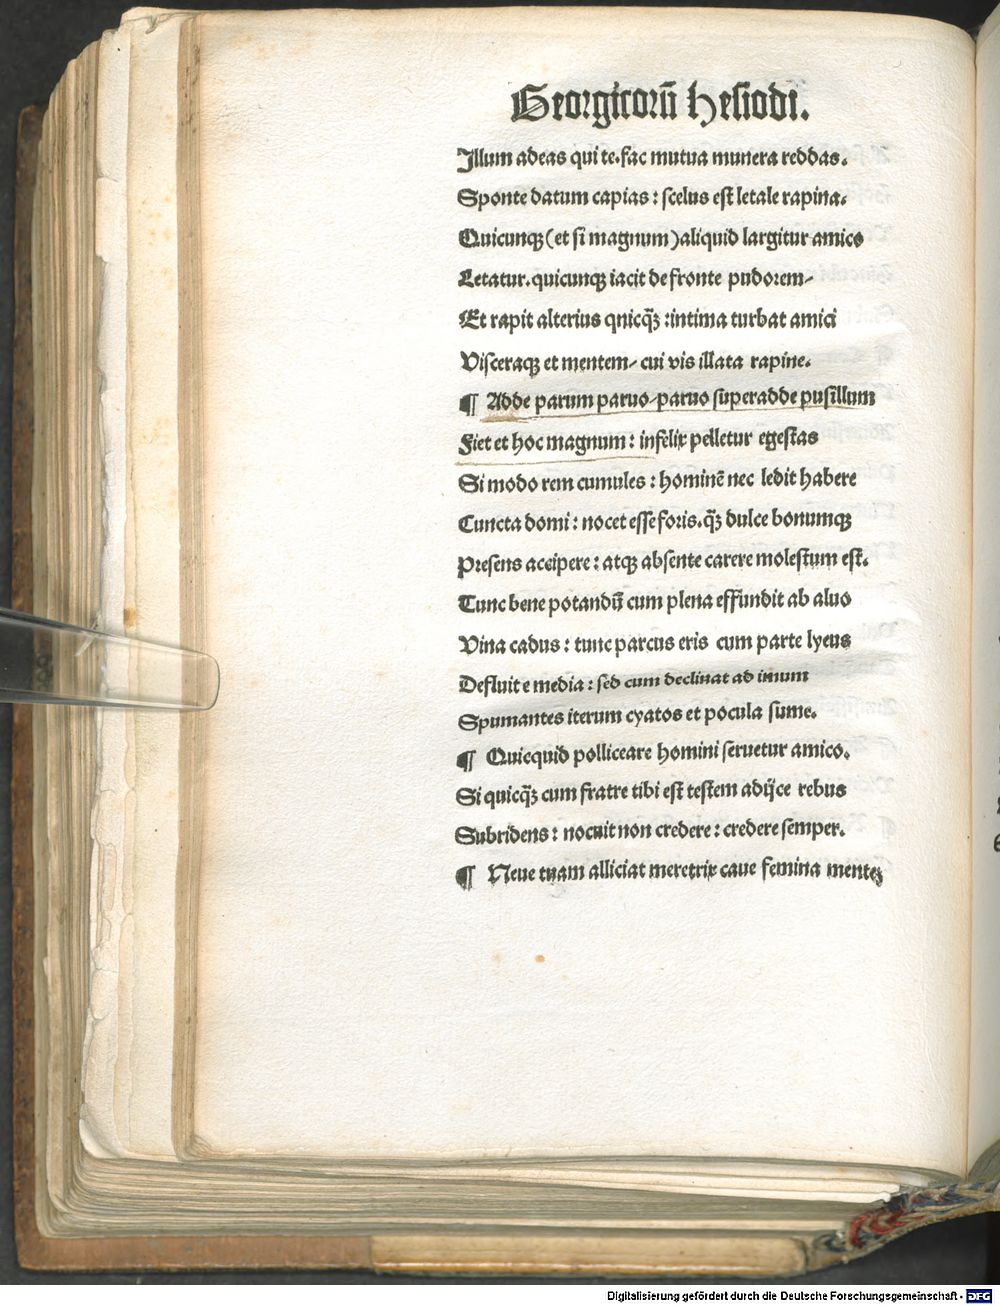 Georgicorū Hesiodi.
Illum adeas qui te. fac mutua munera reddas.
Sponte datum capias : scelus est letale rapina.
Quicunqꝫ (et si magnum) aliquid largitur amico
Letatur. quicunqꝫ iacit de fronte pudorem/
Et rapit alterius qnicq̄ꝫ : intima turbat amici
Visceraqꝫ et mentem/ cui vis illata rapine.
¶ Adde parum paruo/ paruo superadde pusillum
Fiet et hoc magnum : infelix pelletur egestas
Si modo rem cumules : hominē nec ledit habere
Cuncta domi : nocet esse foris. q̄ꝫ dulce bonumqꝫ
Presens accipere : atqꝫ absente carere molestum est.
Tunc bene potandū cum plena effundit ab aluo
Vina cadus : tunc parcus eris cum parte lyeus
Defluit e media : sed cum declinat ad imum
Spumantes iterum cyatos et pocula sume.
¶ Quicquid polliceare homini seruetur amico.
Si quicq̄ꝫ cum fratre tibi est testem adijce rebus
Subridens : nocuit non credere : credere semper.
¶ Neue tuam alliciat meretrix caue femina menteꝫ
Digitalisierung gefördert durch die Deutsche Forschungsgemeinschaft - DFG